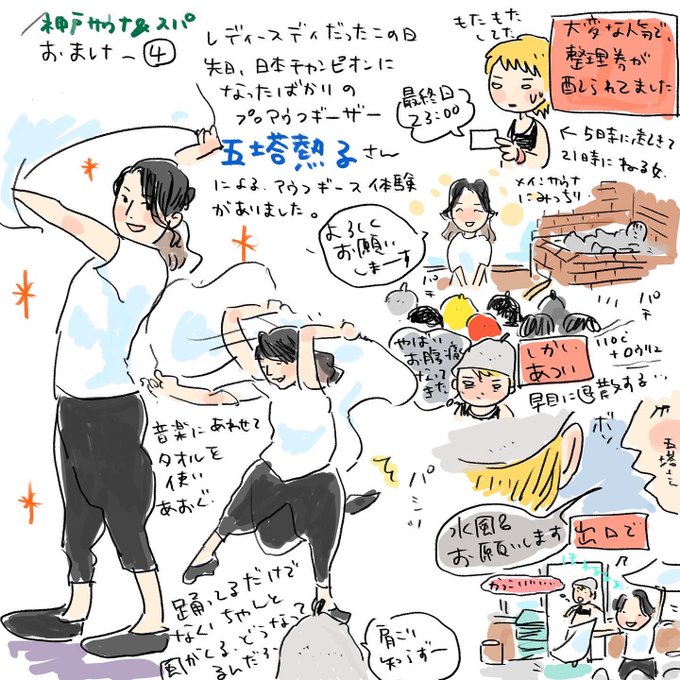 神戸サウナ&スパ
おまけー④
レディースディだったこの日
先日、日本チャンピオンに
なったばかりの
プロアウフギーザー
五塔熱子さん
による、アウフギース体験
がありました。
もたもた
してた。
大変な人気で、
整理券が
配られてました
最終回
23:00
←5時に起きて
21時にねる女。
メインサウナ
にみっちり
よろしく
お願い
しまーす
パチ
パチ
やばい
お腹痛
なって
きた
しかい
あつい
110℃
+ロウリュ
早目に退散する…
ボソ
五塔さん
水風呂
お願いします
出口で
かっこいい
音楽にあわせて
タオルを
使い
あおぐ。
踊ってるだけで
なくちゃんと
風がくる。どうなって
るんだろ
肩こり
知らずー